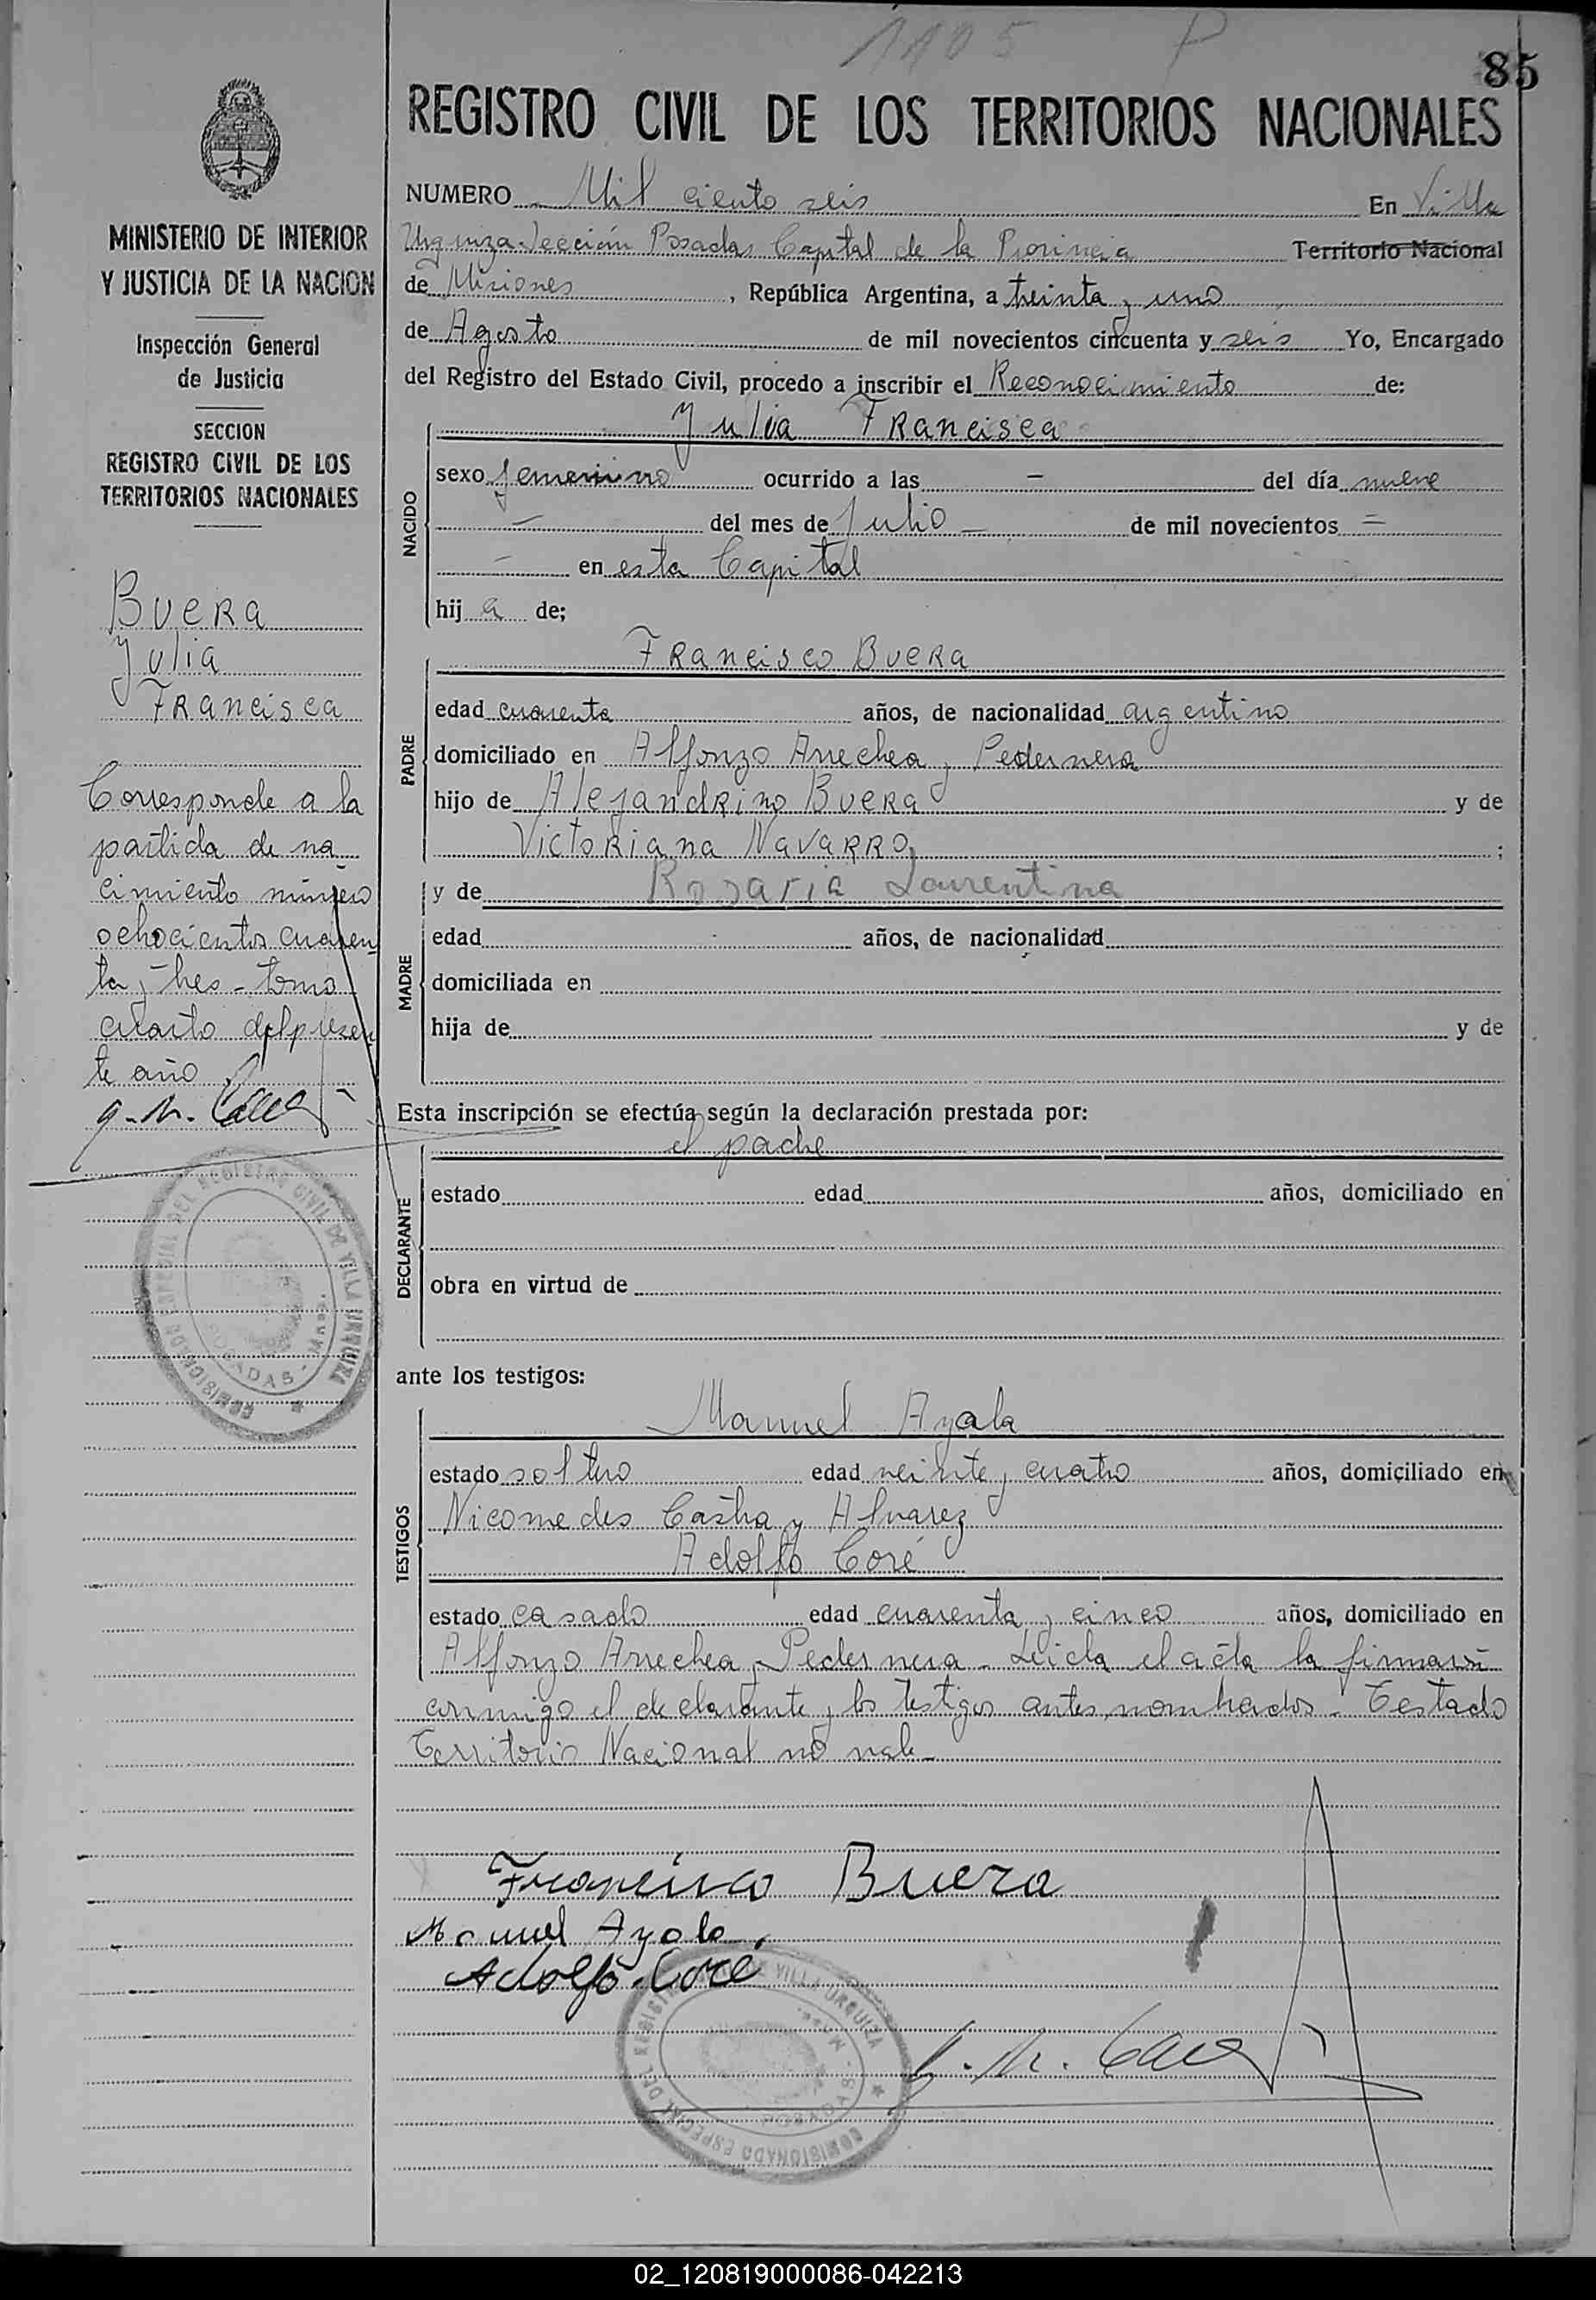 1105 P
85
REGISTRO CIVIL DE LOS TERRITORIOS NACIONALES
NUMERO Mil ciento seis En Villa
Urquiza Sección Posadas Capital de la Provincia Territorio Nacional
de Misiones, República Argentina, a treinta y uno
de Agosto de mil novecientos cincuenta y seis Yo, Encargado
del Registro del Estado Civil, procedo a inscribir el Reconocimiento de:
NACIDO
Julia Francisca
sexo femenino ocurrido a las - del día nueve
- del mes de Julio - de mil novecientos =
- en esta Capital
hij a de;
PADRE
Francisco Buera
edad cuarenta años, de nacionalidad argentino
domiciliado en Alfonzo Arrechea y Pedernera
hijo de Alejandrino Buera y de
Victoriana Navarro;
MADRE
y de Rosaria Laurentina
edad años, de nacionalidad
domiciliada en
hija de y de
Esta inscripción se efectúa según la declaración prestada por:
DECLARANTE
el padre
estado edad años, domiciliado en
obra en virtud de
ante los testigos:
TESTIGOS
Manuel Ayala
estado soltero edad veinte y cuatro años, domiciliado en
Nicomedes Castro y Alvarez
Adolfo Coré
estado casado edad cuarenta y cinco años, domiciliado en
Alfonzo Arrechea y Pedernera - Leida el acta la firmaron
conmigo el declarante y los testigos antes nombrados - Testado
Territorio Nacional no vale -
Francisco Buera
Manuel Ayala
Adolfo Coré
COMISIONADO ESPECIAL DEL REGISTRO CIVIL DE VILLA URQUIZA
POSADAS - Mnes.
MINISTERIO DE INTERIOR
Y JUSTICIA DE LA NACION
Inspección General
de Justicia
SECCION
REGISTRO CIVIL DE LOS
TERRITORIOS NACIONALES
Buera
Julia
Francisca
Corresponde a la
partida de na
cimiento número
ochocientos cuaren
ta y tres - tomo
cuarto del presen
te año
COMISIONADO ESPECIAL DEL REGISTRO CIVIL DE VILLA URQUIZA
POSADAS - Mnes.
02_120819000086-042213